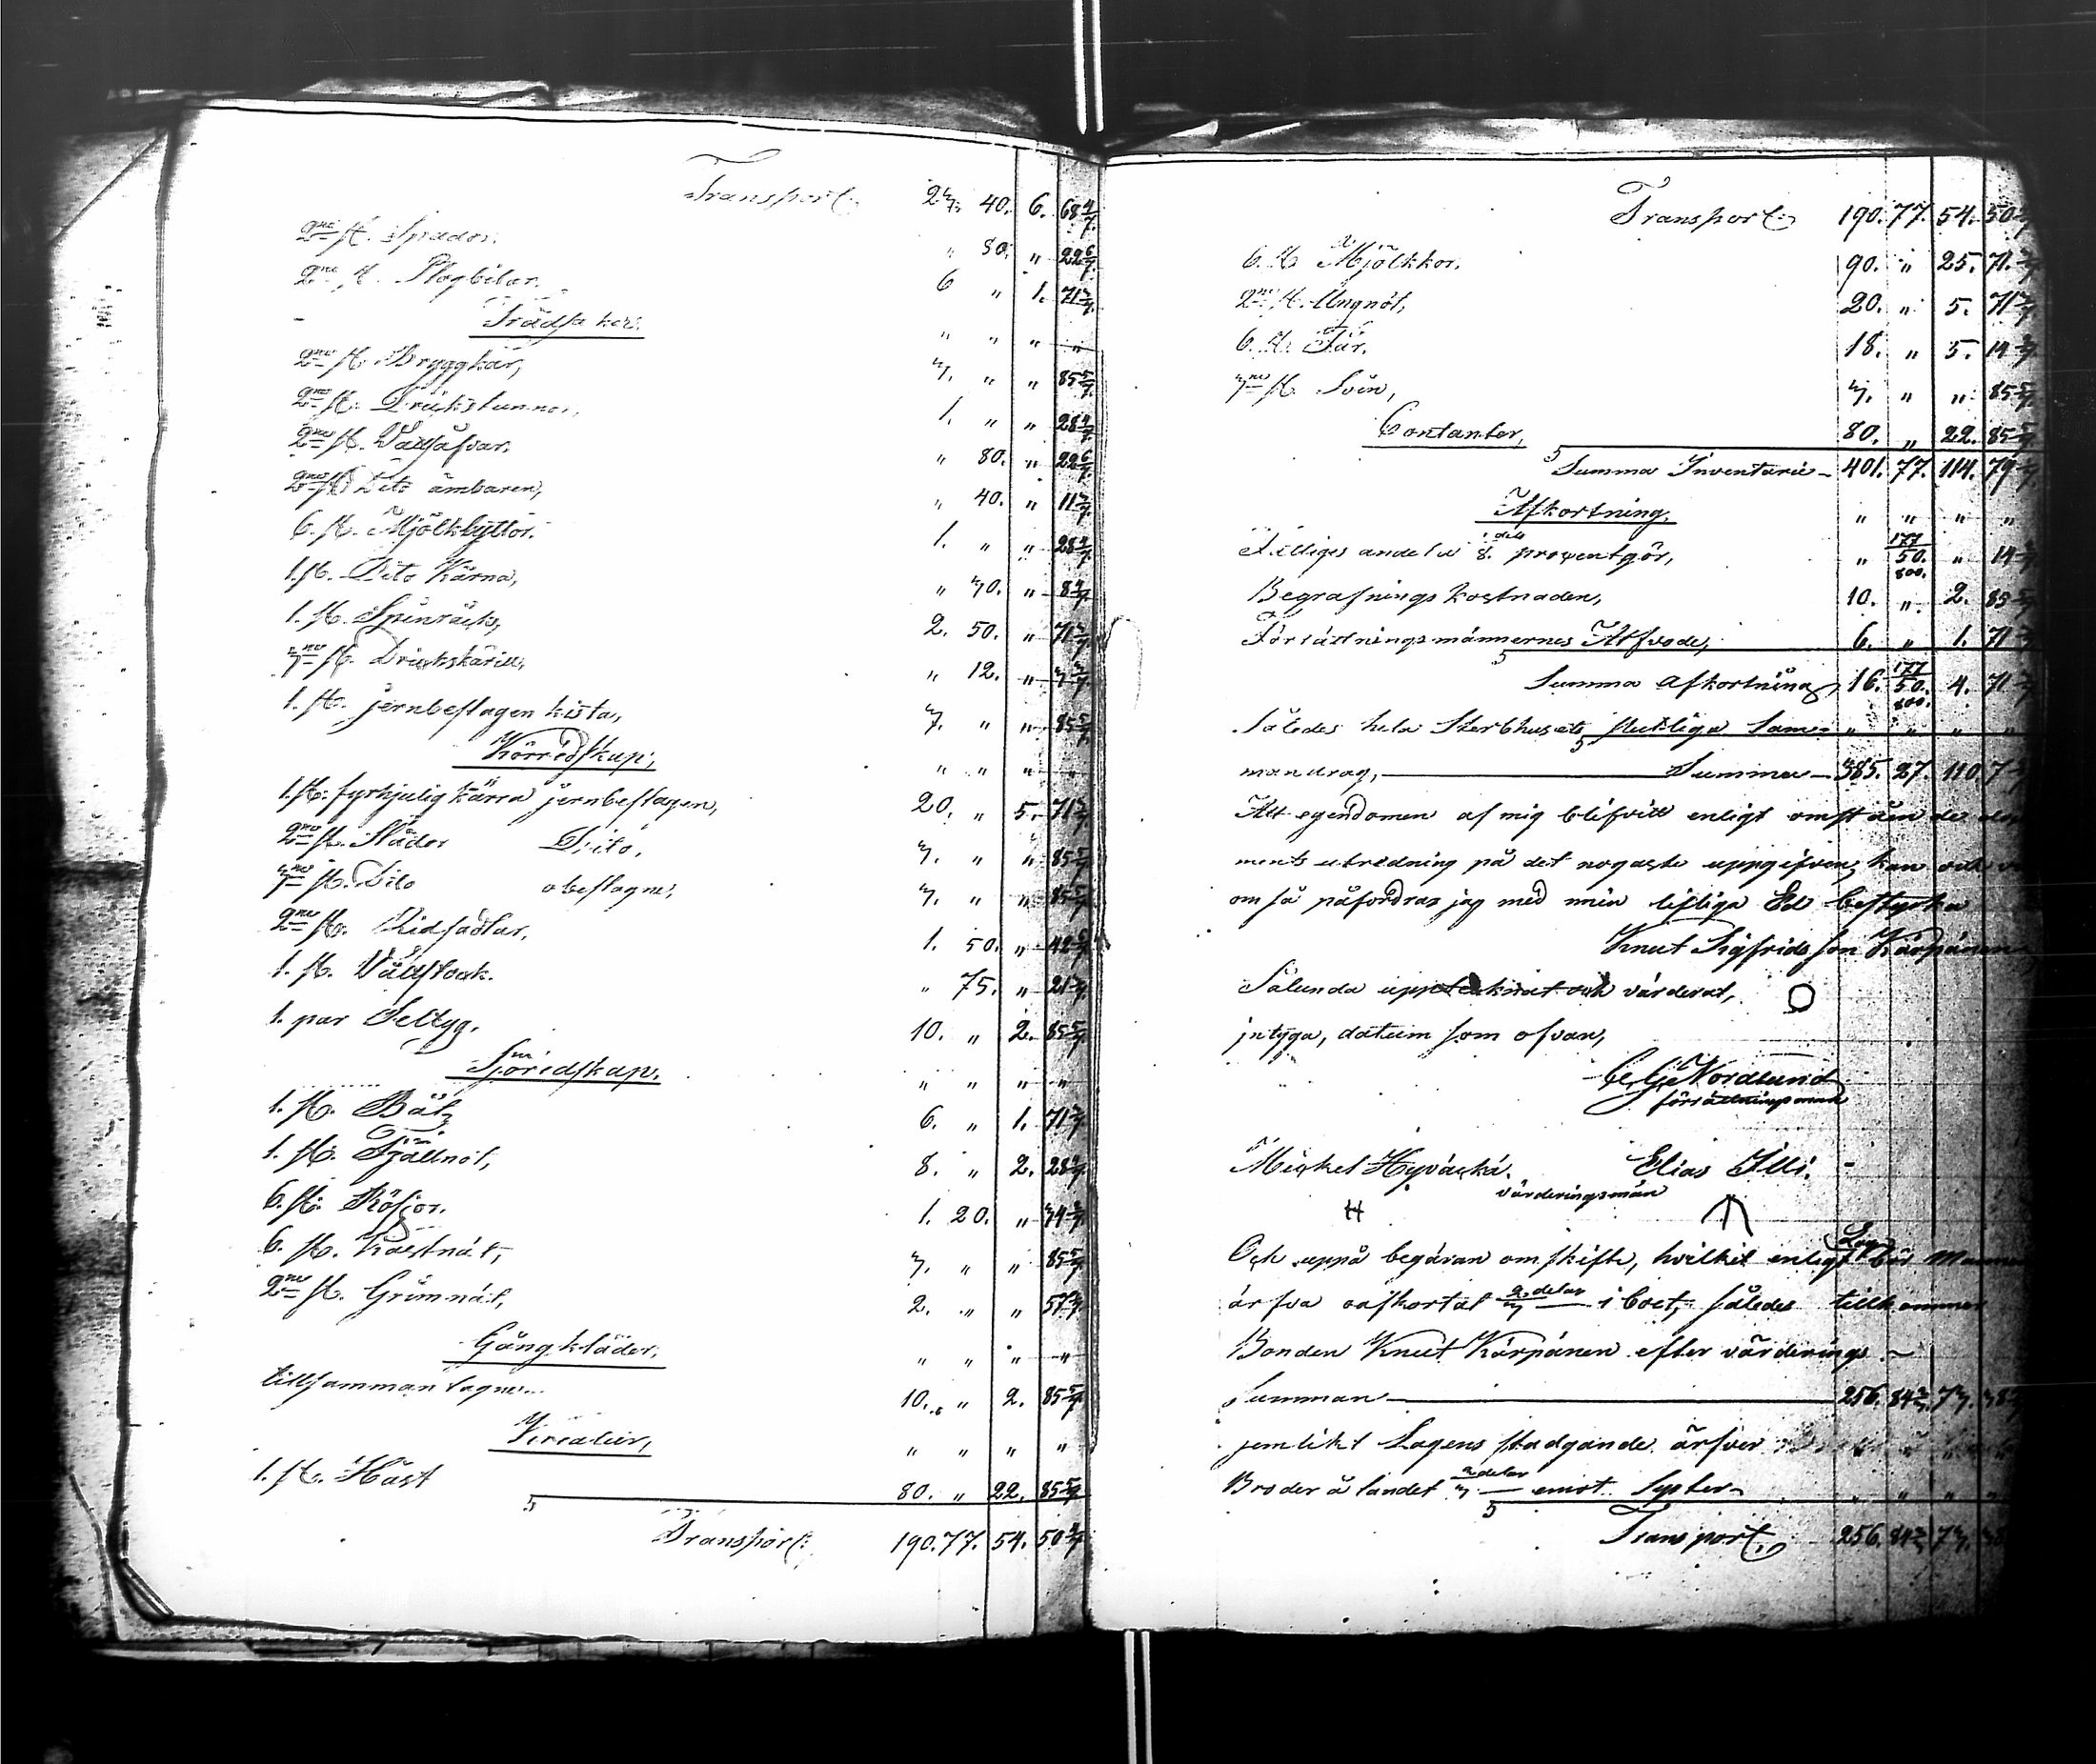 Transport: 23. 40. 6. 68 4/7.
2ne st. Spador. " 80. " 22 6/7.
2ne st. Plogbilar. 6 " 1. 71 3/7.
Trädsaker. " " " "
2ne st. Bryggkar, 3. " " 85 5/7.
2ne st. Drickstunnor, 1. " " 28 4/7.
2ne st. Vattsåfvar. " 80. " 22 6/7.
2ne st. Dito ämbaren, " 40. " 11 3/7.
6. st. Mjölkbyttor. 1. " " 28 4/7.
1. st. Dito Kärna, " 30. " 8 4/7.
1. st. Spinråck, 2. 50. " 71 3/7.
3ne st. Drickskärill, " 12. " 3 3/7.
1. st. jernbeslagen kista, 3. " " 85 5/7.
Körredskap; " " " "
1. st. fyrhjulig kärra jernbeslagen, 20. " 5. 71 3/7.
2ne st. Slädor Dito. 3. " " 85 5/7.
3ne st. Dito obeslagne, 3. " " 85 5/7.
2ne st. Ridsadlar. 1. 50. " 42 6/7.
1. st. " 75. " 21 3/7.
1. par Seltyg. 10. " 2. 85 5/7.
Sjöredskap. " " " "
1. st. Båt, 6. " 1. 71 3/7.
1. st. Fjällnöt, 8. " 2. 28 4/7.
6. st. Rösjor. 1. 20. " 34 2/7.
6. st. nät, 3. " " 85 5/7.
2ne st. Grimnät, 2. " " 57 1/7.
Gångkläder, " " " "
tillsammantagne.. 10. " 2. 85 5/7.
" " " "
1. st. Häst 80. " 22. 85 5/7.
Transport: 190. 77. 54. 50 4/7
Transport: 190. 77. 54. 50 4/7
6. st. Mjölkkor. 90. " 25. 71. 3/7
2ne st. Ungnöt, 20. " 5. 71 3/7.
6. st. Får. 18. " 5. 14 2/7.
3ne st. Svin, 3. " " 85 5/7.
Contanter, 80. " 22. 85 5/7.
Summa Inventarie 401. 77. 114. 79 1/7.
Afkortning, " " " "
Fattiges andel 1/8. dels procentgör, " 50. " 14
Begrafnings kostnaden, 10. " 2. 85 5/7
Förrättningsmännernes Arfvode, 6. " 1. 71 3/7
Summa afkortning 16. 50. 4. 71
Således hela Sterbhusets slutliga Sam- " " " "
mandrag, Summa 385. 27. 110. 7
Att egendomen af mig blifvit enligt omständeligt
ments utredning på det nogaste uppgifven, kan och
om så påfordras jag med min lifliga Ed bestyrka
Knut Sigfridsson Kärpänen
Sålunda uppteknat och värderat,
intyga, datum som ofvan,
C. G. Nordlund
förrättningsman
Mickel Hyväskä. Elias Illi.
värderingsmän
Och uppå begäran om skifte, hvilket enligt Lag bör
ärfva oafkortat 2/3 delar i boet, således tillkommer
Bonden Knut Kärpänen efter värderings
Summan 256. 84 2/3 73. 38
jemlikt Lagens stadgande ärfver
Broder å landet 2/3 delar emot Syster " " " "
Transport, 256. 84 2/3 73. 38